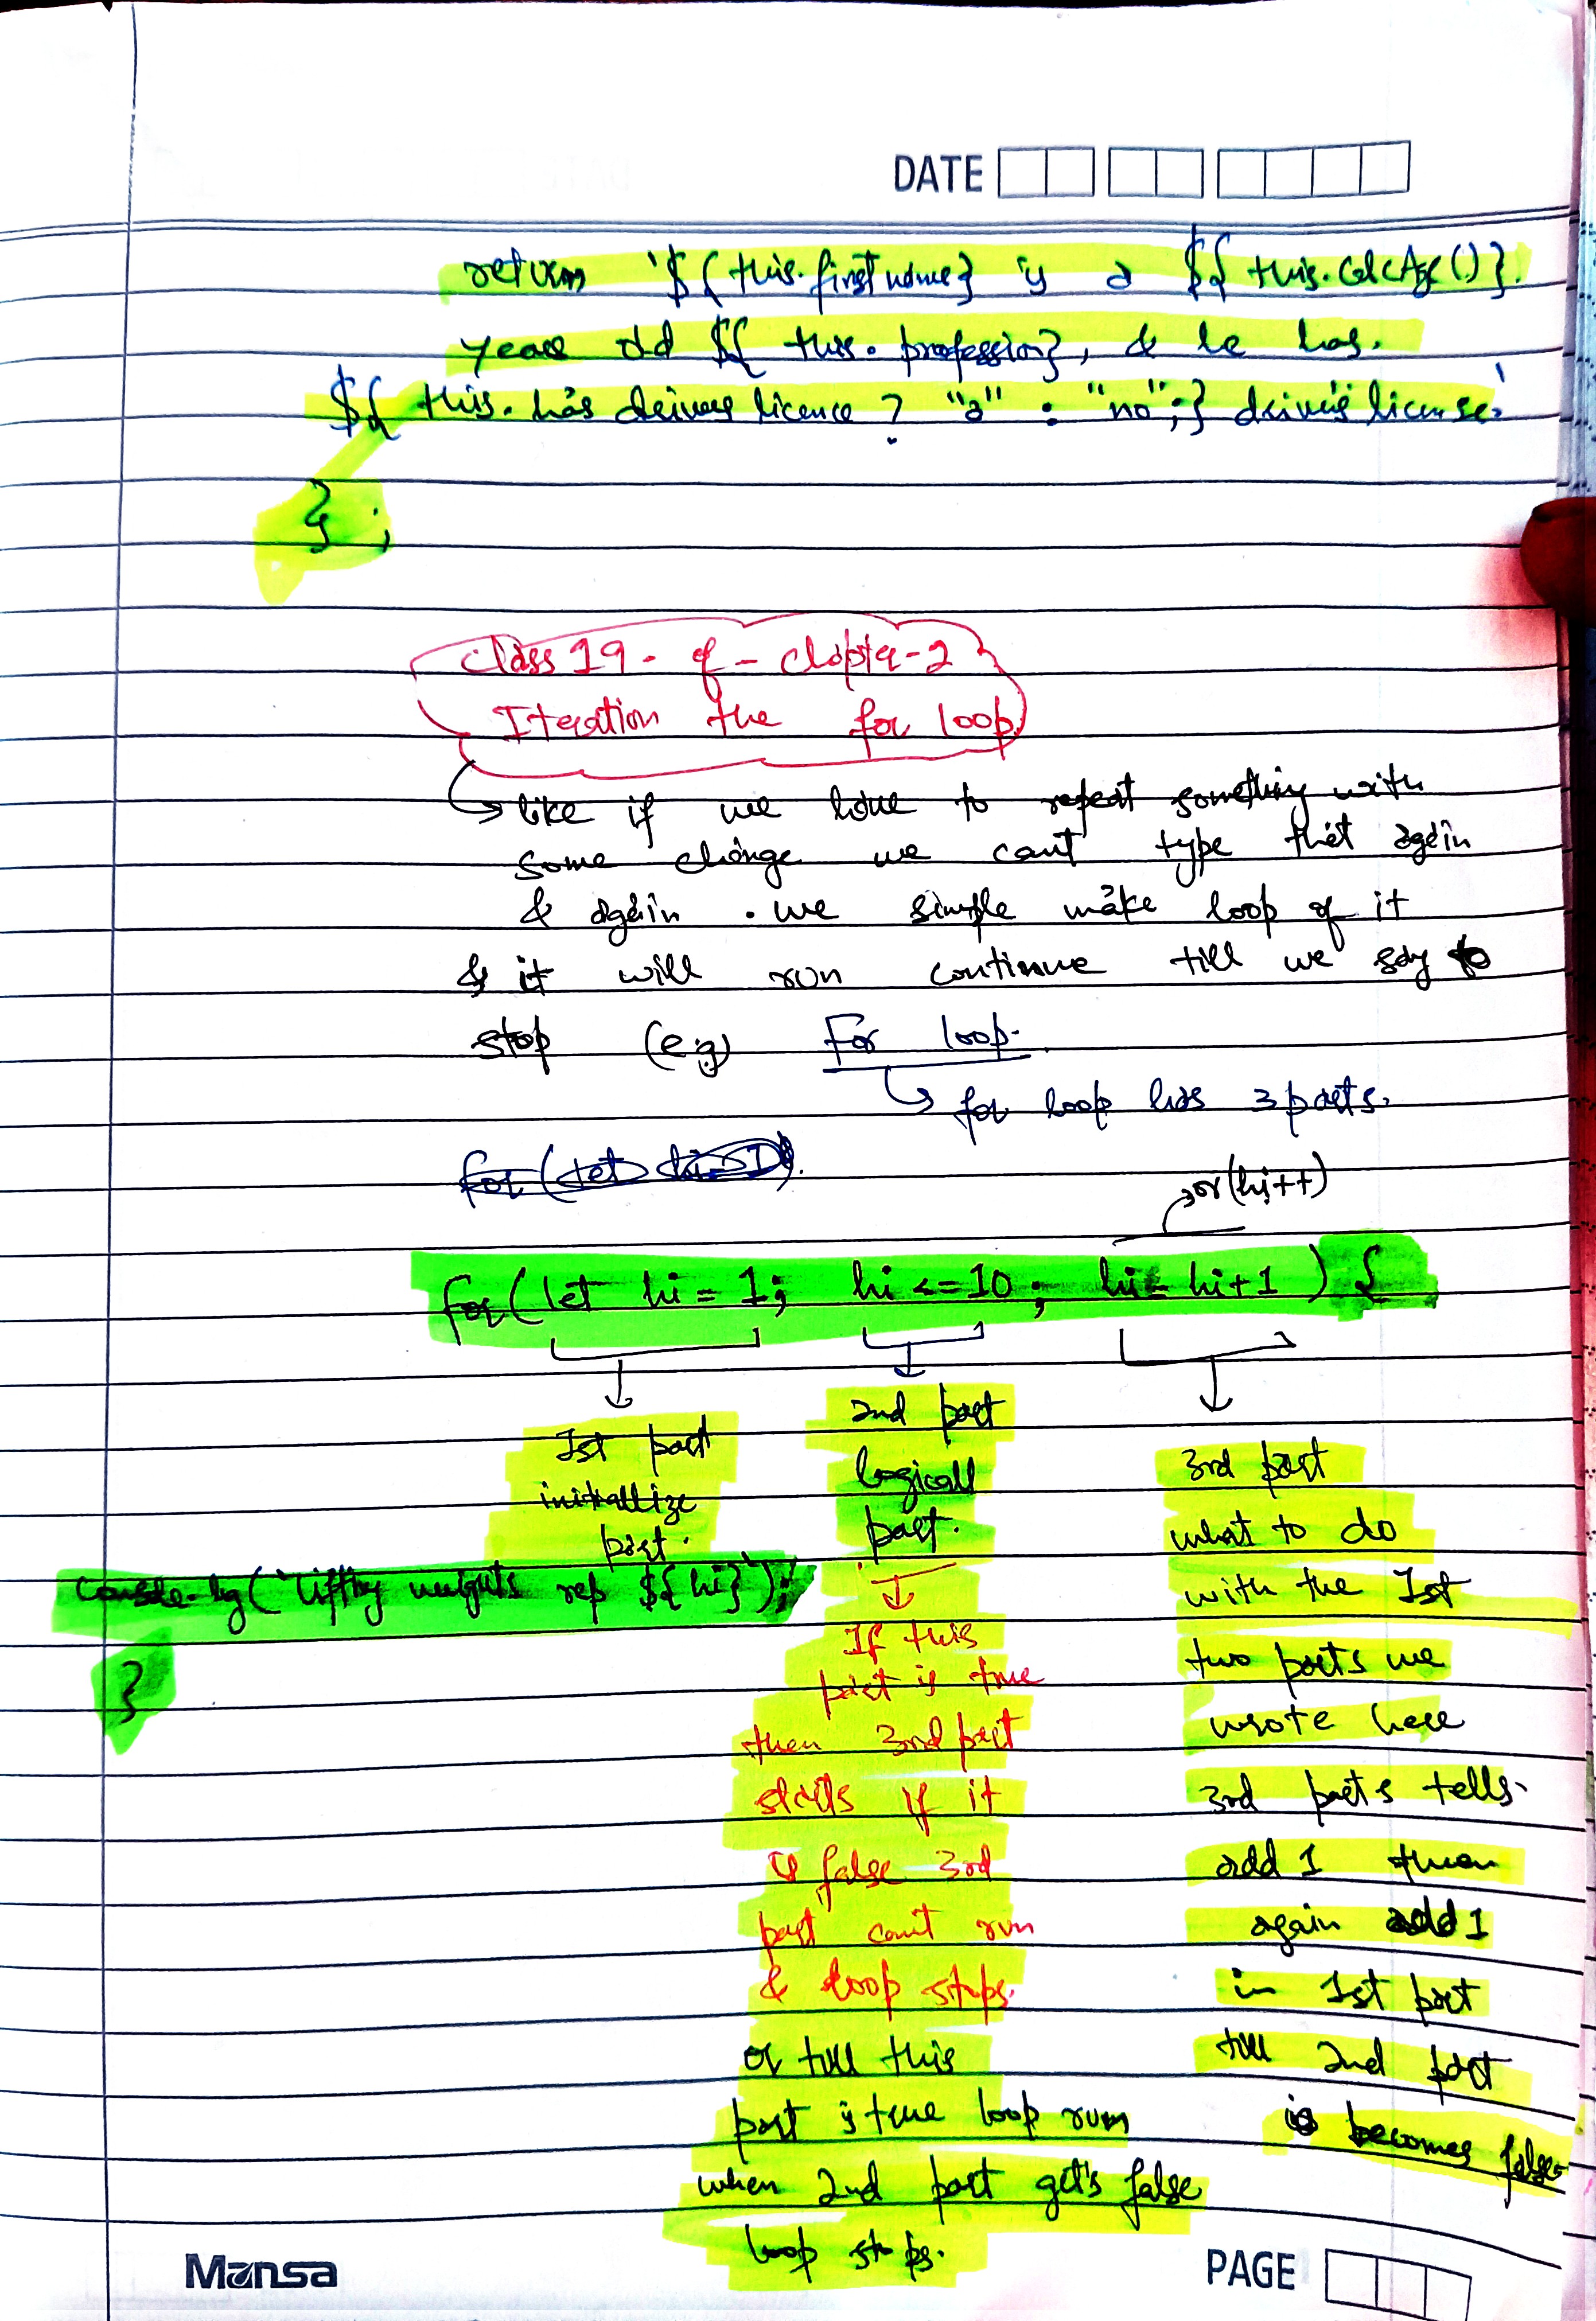 DATE
return `${this.firstname} is a ${this.calcAge()}.
years old ${this.profession}, & he has.
${this.has drivers licence ? "a" : "no";} driver's license.`
};
Class 19 - of - chapter-2
Iteration the for loop
like if we have to repeat something with
some change we can't type that again
& again . we simple make loop of it
& it will run continue till we say to
stop (e.g) For loop.
for loop has 3 parts.
for (let hi=1)
or (hi++)
for (let hi = 1; hi <= 10; hi = hi+1) {
1st part
initiallize
part.
2nd part
logicall
part.
If this
part is true
then 3rd part
starts if it
is false 3rd
part can't run
& loop stops.
or till this
part is true loop run
when 2nd part get's false
loop stops.
3rd part
what to do
with the 1st
two parts we
wrote here
3rd parts tells.
add 1 then
again add 1
in 1st part
till 2nd part
is becomes false.
console.log(`Lifting weights rep ${hi}`);
}
Mansa
PAGE